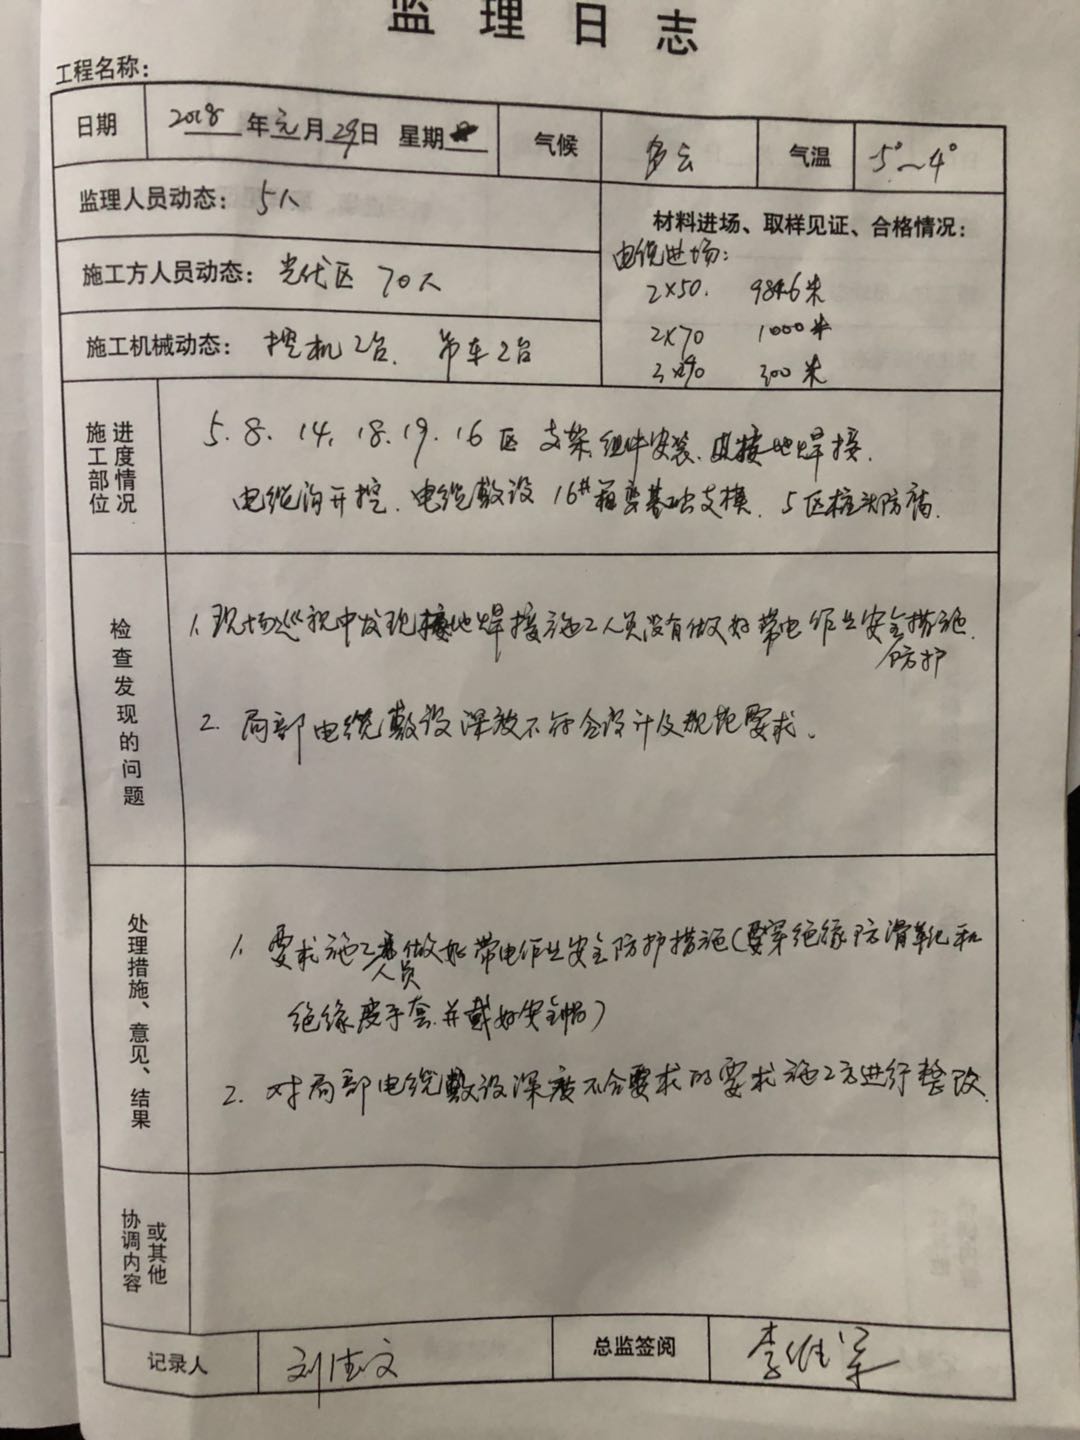 监理日志
工程名称：
日期 2018年元月29日 星期 气候 多云 气温 5°~4°
监理人员动态： 5人
材料进场、取样见证、合格情况：
电缆进场：
施工方人员动态： 光伏区 70人
2×50. 984.6米
2×70 1000米
施工机械动态： 挖机2台、吊车2台
300米
施工部位 进度情况
5、8、14、18、19、16区 支架、组件安装、接地焊接、
电缆沟开挖、电缆敷设 16#箱变基础支模、5区桩头防腐、
检查发现的问题
1、现场巡视中发现接地焊接施工人员没有做好带电作业安全措施、
防护
2、局部电缆敷设深度不符合设计及规范要求。
处理措施、意见、结果
1、要求施工做好带电作业安全防护措施（要穿绝缘防滑靴和
人员
绝缘皮手套、并戴好安全帽）
2、对局部电缆敷设深度不合要求的要求施工方进行整改、
协调内容 或其他
记录人 刘佳文 总监签阅